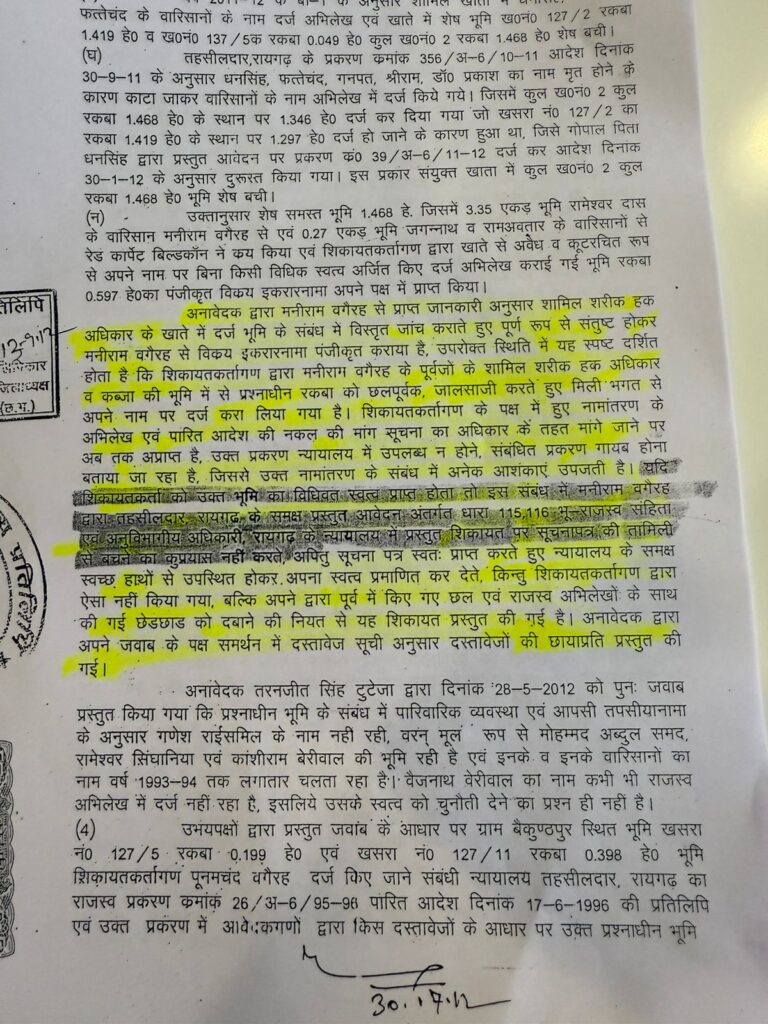 फत्तेचंद के वारिसानों के नाम दर्ज अभिलेख एवं खाते में शेष भूमि ख0नं0 127/2 रकबा
1.419 हे0 व ख0नं0 137/5क रकबा 0.049 हे0 कुल ख0नं0 2 रकबा 1.468 हे0 शेष बची।
(घ) तहसीलदार,रायगढ़ के प्रकरण कमांक 356/अ-6/10-11 आदेश दिनांक
30-9-11 के अनुसार धनसिंह, फत्तेचंद, गनपत, श्रीराम, डॉ0 प्रकाश का नाम मृत होने के
कारण काटा जाकर वारिसानों के नाम अभिलेख में दर्ज किये गये। जिसमें कुल ख0नं0 2 कुल
रकबा 1.468 हे0 के स्थान पर 1.346 हे0 दर्ज कर दिया गया जो खसरा नं0 127/2 का
रकबा 1.419 हे0 के स्थान पर 1.297 हे0 दर्ज हो जाने के कारण हुआ था, जिसे गोपाल पिता
धनसिंह द्वारा प्रस्तुत आवेदन पर प्रकरण कं0 39/अ-6/11-12 दर्ज कर आदेश दिनांक
30-1-12 के अनुसार दुरूस्त किया गया। इस प्रकार संयुक्त खाता में कुल ख0नं0 2 कुल
रकबा 1.468 हे0 भूमि शेष बची।
(न) उक्तानुसार शेष समस्त भूमि 1.468 हे. जिसमें 3.35 एकड़ भूमि रामेश्वर दास
के वारिसान मनीराम वगैरह से एवं 0.27 एकड़ भूमि जगन्नाथ व रामअवतार के वारिसानों से
रेड कार्पेट बिल्डकॉन ने कय किया एवं शिकायतकर्तागण द्वारा खाते से अवैध व कूटरचित रूप
से अपने नाम पर बिना किसी विधिक स्वत्व अर्जित किए दर्ज अभिलेख कराई गई भूमि रकबा
0.597 हे0का पंजीकृत विकय इकरारनामा अपने पक्ष में प्राप्त किया।
अनावेदक द्वारा मनीराम वगैरह से प्राप्त जानकारी अनुसार शामिल शरीक हक
अधिकार के खाते में दर्ज भूमि के संबंध में विस्तृत जांच कराते हुए पूर्ण रूप से संतुष्ट होकर
मनीराम वगैरह से विकय इकरारनामा पंजीकृत कराया है, उपरोक्त स्थिति में यह स्पष्ट दर्शित
होता है कि शिकायतकर्तागण द्वारा मनीराम वगैरह के पूर्वजों के शामिल शरीक हक अधिकार
व कब्जा की भूमि में से प्रश्नाधीन रकबा को छलपूर्वक, जालसाजी करते हुए मिली भगत से
अपने नाम पर दर्ज करा लिया गया है। शिकायतकर्तागण के पक्ष में हुए नामांतरण के
अभिलेख एवं पारित आदेश की नकल की मांग सूचना का अधिकार के तहत मांगे जाने पर
अब तक अप्राप्त है, उक्त प्रकरण न्यायालय में उपलब्ध न होने, संबंधित प्रकरण गायब होना
बताया जा रहा है, जिससे उक्त नामांतरण के संबंध में अनेक आशंकाएं उपजती है। यदि
शिकायतकर्ता को उक्त भूमि का विधिवत स्वत्व प्राप्त होता तो इस संबंध में मनीराम वगैरह
द्वारा तहसीलदार, रायगढ़ के समक्ष प्रस्तुत आवेदन अंतर्गत धारा 115,116 भू-राजस्व संहिता
एवं अनुविभागीय अधिकारी, रायगढ़ के न्यायालय में प्रस्तुत शिकायत पर सूचनापत्र की तामिली
से बचने का कुप्रयास नहीं करते, अपितु सूचना पत्र स्वतः प्राप्त करते हुए न्यायालय के समक्ष
स्वच्छ हाथों से उपस्थित होकर अपना स्वत्व प्रमाणित कर देते, किन्तु शिकायतकर्तागण द्वारा
ऐसा नहीं किया गया, बल्कि अपने द्वारा पूर्व में किए गए छल एवं राजस्व अभिलेखों के साथ
की गई छेडछाड को दबाने की नियत से यह शिकायत प्रस्तुत की गई है। अनावेदक द्वारा
अपने जवाब के पक्ष समर्थन में दस्तावेज सूची अनुसार दस्तावेजों की छायाप्रति प्रस्तुत की
गई।
अनावेदक तरनजीत सिंह टुटेजा द्वारा दिनांक 28-5-2012 को पुनः जवाब
प्रस्तुत किया गया कि प्रश्नाधीन भूमि के संबंध में पारिवारिक व्यवस्था एवं आपसी तपसीयानामा
के अनुसार गणेश राईसमिल के नाम नही रही, वरन् मूलं रूप से मोहम्मद अब्दुल समद,
रामेश्वर सिंघानिया एवं कांशीराम बेरीवाल की भूमि रही है एवं इनके व इनके वारिसानों का
नाम वर्ष 1993-94 तक लगातार चलता रहा है। वैजनाथ वेरीवाल का नाम कभी भी राजस्व
अभिलेख में दर्ज नहीं रहा है, इसलिये उसके स्वत्व को चुनौती देने का प्रश्न ही नहीं है।
(4) उभयपक्षों द्वारा प्रस्तुत जवाब के आधार पर ग्राम बैकुण्ठपुर स्थित भूमि खसरा
नं0 127/5 रकबा 0.199 हे0 एवं खसरा नं0 127/11 रकबा 0.398 हे0 भूमि
शिकायतकर्तागण पूनमचंद वगैरह दर्ज किए जाने संबंधी न्यायालय तहसीलदार, रायगढ़ का
राजस्व प्रकरण कमांक 26/अ-6/95-96 पारित आदेश दिनांक 17-6-1996 की प्रतिलिपि
एवं उक्त प्रकरण में आवेदकगणों द्वारा किस दस्तावेजों के आधार पर उक्त प्रश्नाधीन भूमि